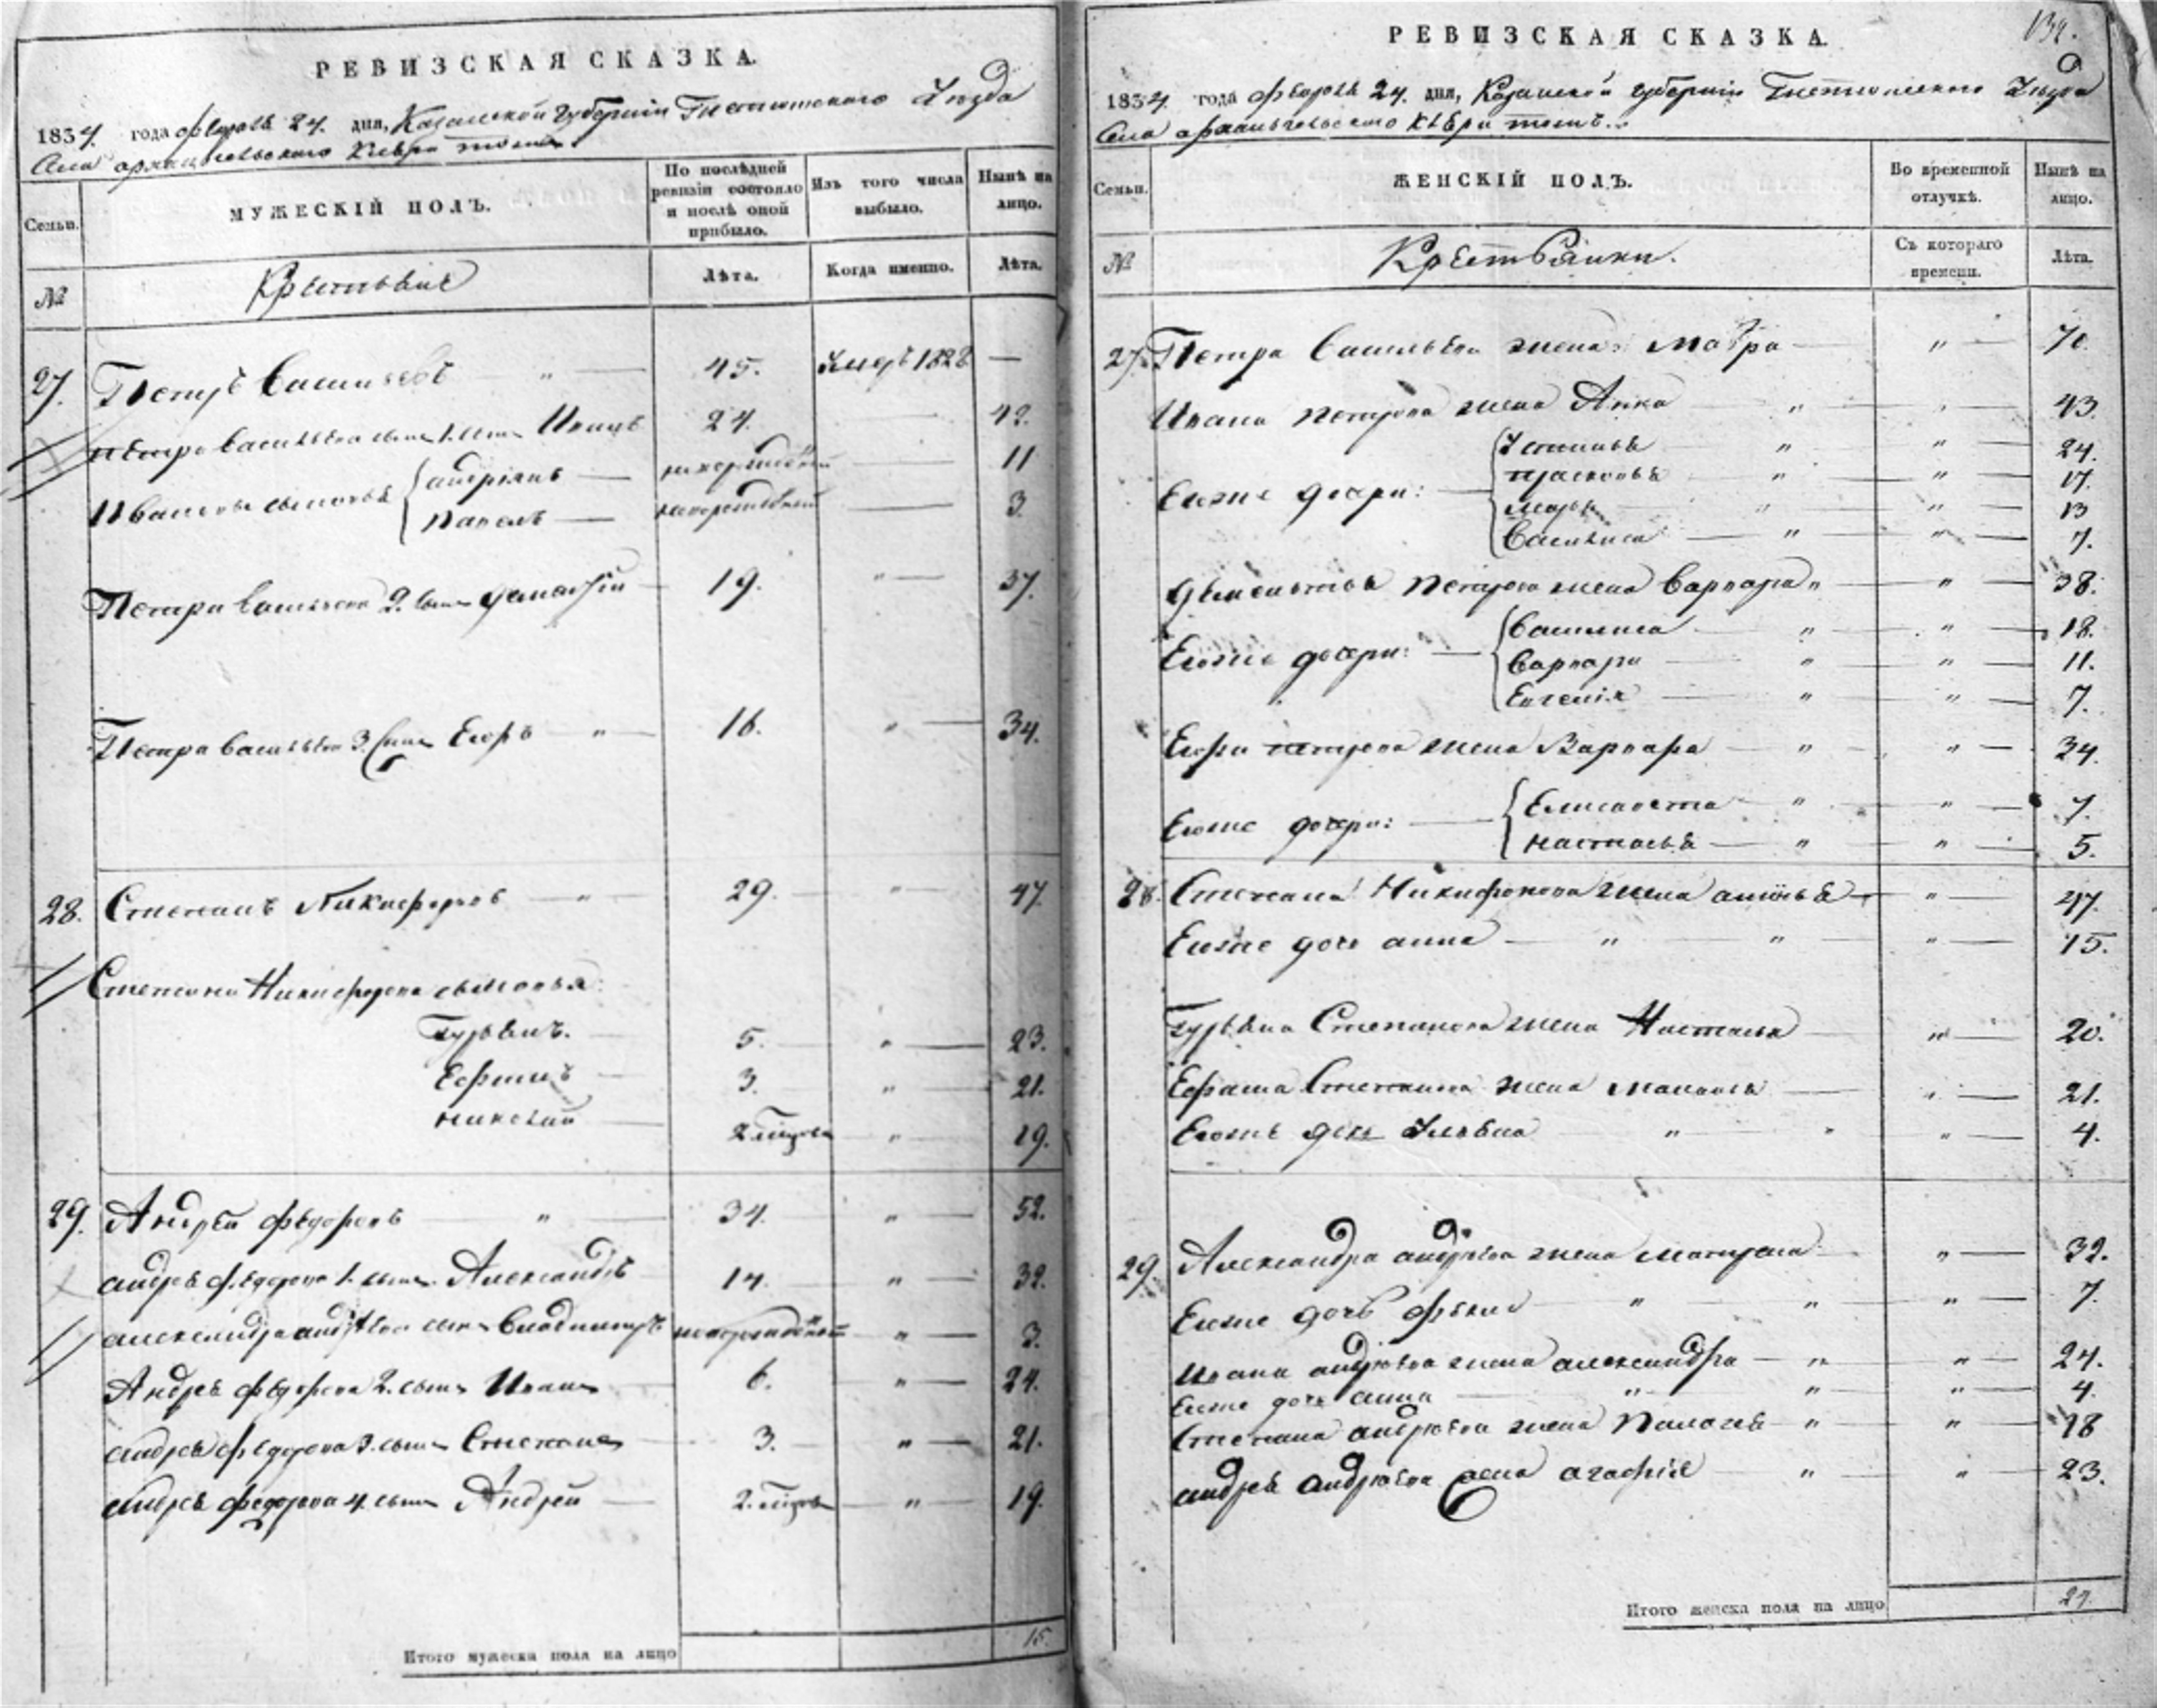 РЕВИЗСКАЯ СКАЗКА.
1834 года февраля 24. дня, Казанской Губернии Чистопольского Уѣзда
Села архангельскаго
Семьи.
МУЖЕСКІЙ ПОЛЪ.
По послѣдней ревизіи состояло и послѣ оной прибыло.
Изъ того числа выбыло.
Нынѣ на лицо.
№
Крестьяне
Лѣта.
Когда именно.
Лѣта.
27. Петръ Васильевъ " 45. Умеръ 1828 —
Петра Васильева сынъ 1. сынъ Иванъ 24. 42.
Ивановы сыновья андріянъ новорожденный 11
Павелъ новорожденный 3.
Петра Васильева 2. сынъ 19. " 37.
Петра Васильева 3. сынъ Егоръ " 16. " 34.
28. Степанъ Никифоровъ " 29. " 47.
Степана Никифорова сыновья:
Гурьянъ. 5. " 23.
Ефимъ 3. " 21.
Николай 2 " 19.
29. Андрей Федоровъ " 34. " 52.
андрея федорова 1. сынъ Александръ 14. " 32.
александра андреева сынъ Владимиръ новорожденный " 3.
Андрея федорова 2. сынъ Иванъ 6. " 24.
андрея федорова 3. сынъ Степанъ 3. " 21.
андрея федорова 4. сынъ Андрей 2. " 19.
Итого мужеска пола на лицо 15.
РЕВИЗСКАЯ СКАЗКА.
1834 года февраля 24. дня, Казанской губерніи Чистопольскаго Уѣзда
Села архангельскаго
Семьи.
ЖЕНСКІЙ ПОЛЪ.
Во временной отлучкѣ.
Нынѣ на лицо.
№
Крестьянки.
Съ котораго времени.
Лѣта.
27. Петра Васильева жена Мавра " 70.
Ивана петрова жена Анна " 43.
Устинья " " 24.
Егоже дочери: Прасковья " " 17.
Марья " " 13
Василиса " " 7.
петрова жена Варвара " " 38.
Василиса " " 18.
Егоже дочери: Варвара " " 11.
Евгенія " " 7.
Егора петрова жена Варвара " " 34.
Егоже дочери: Елисавета " " 7.
настасья " " 5.
28. Степана Никифорова жена " 47.
Егоже дочь анна " " " 15.
Гурьяна Степанова жена Настасья " 20.
Ефима Степанова жена " 21.
Егоже дочь Ульяна " " " 4.
29. Александра андреева жена матрена " 32.
Егоже дочь " " " 7.
Ивана андреева жена александра " " 24.
Егоже дочь анна " " " 4.
Степана андреева жена Палагея " " 18
андрея андреева жена агафія " " 23.
Итого женска пола на лицо